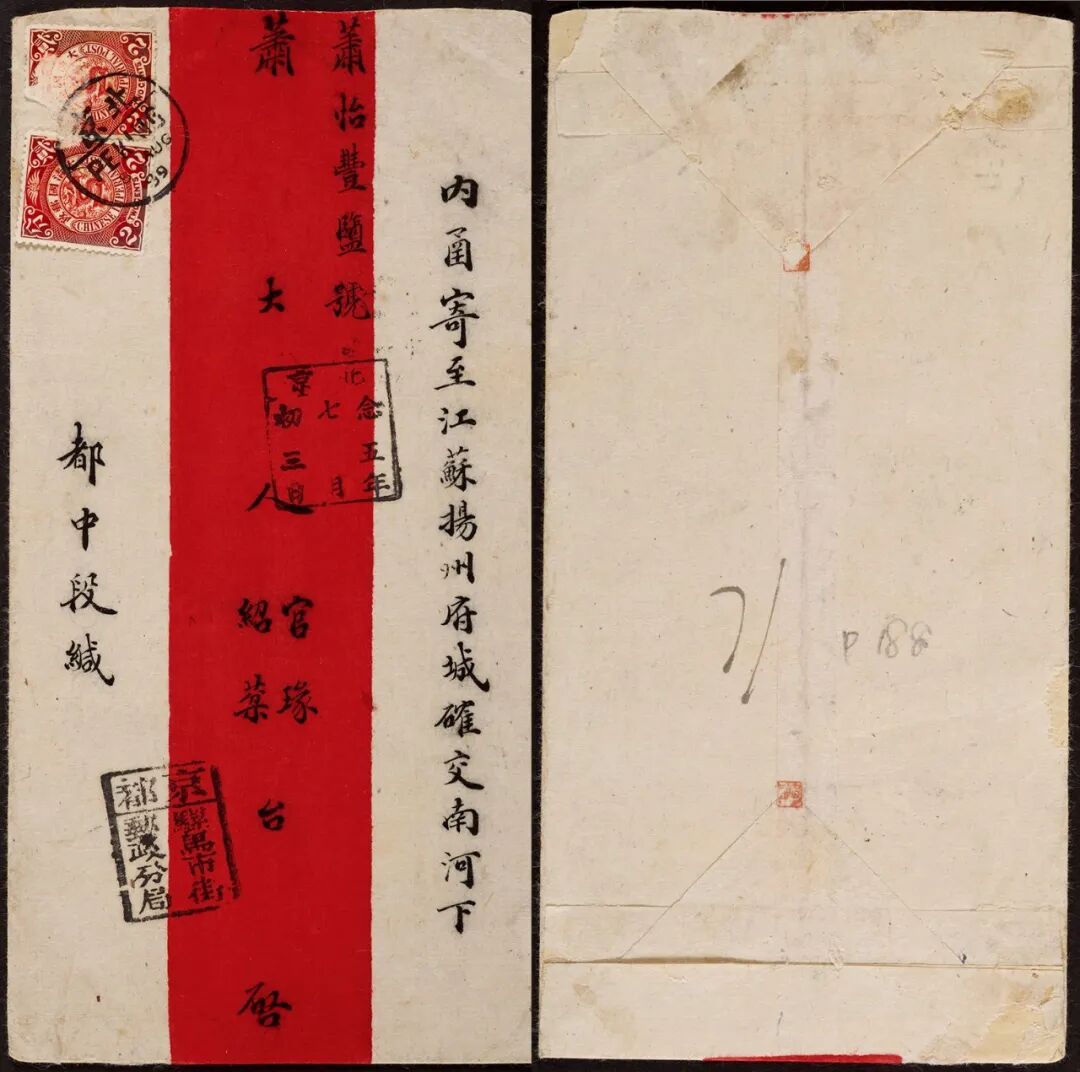 内函寄至江蘇揚州府城確交南河下
蕭怡豐鹽號
蕭大人官 印 紹棻台啟
都中段緘
北京
PEKING
AUG
99
念五年
七月
初三日
京
京都
騾馬市街
郵政分局
CHINESE
2
2
分
2
71
P 188